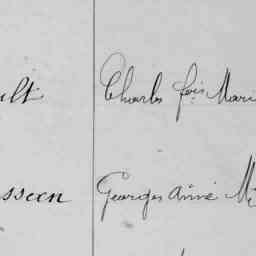 ult Charles fois Mari
sseen Georges Aimé M